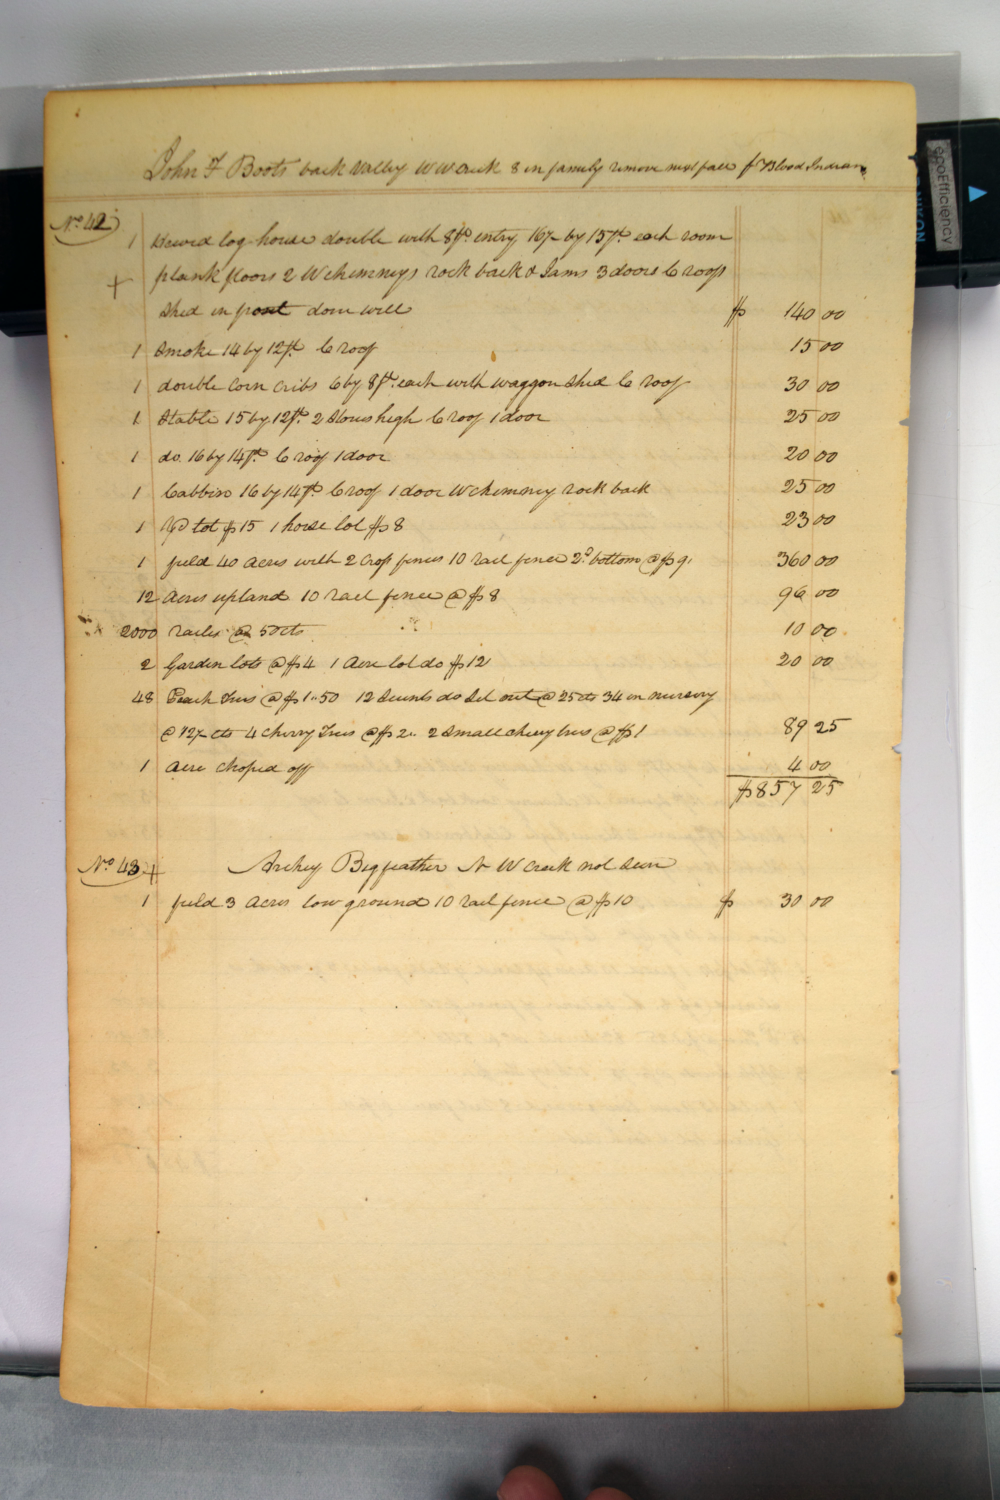 John F Boots back valley W W Creek 8 in family remove next fall f Blood Indian
No. 42
1 Hewed log house double with 8ft entry 16 by 15ft each room
plank floors 2 W chimneys rock back & Jams 3 doors C roof
+ Shed in front done well $ 140 00
1 Smoke 14 by 12ft C roof 15 00
1 double corn cribs 6 by 8ft each with waggon shed C roof 30 00
1 Stable 15 by 12ft 2 Stories high C roof 1 door 25 00
1 do. 16 by 14ft C roof 1 door 20 00
1 Cabbin 16 by 14ft C roof 1 door W chimney rock back 25 00
1 lot $15 1 horse lot $8 23 00
1 field 40 acres with 2 Cross fences 10 rail fence 2d bottom @ $9 360 00
12 Acres upland 10 rail fence @ $8 96 00
2000 rails @ 50 cts 10 00
2 Garden lots @ $4 1 Acre lot do $12 20 00
48 Peach Trees @ $1.50 12 do Set out @ 25 cts 34 in nursery
@ 12 cts 4 Cherry Trees @ $2. 2 Small cherry trees @ $1 89 25
1 Acre choped off 4 00
$857 25
No. 43 + Archey Bigfeather N W Creek not seen
1 field 3 Acres low ground 10 rail fence @ $10 $ 30 00
ecoEfficiency